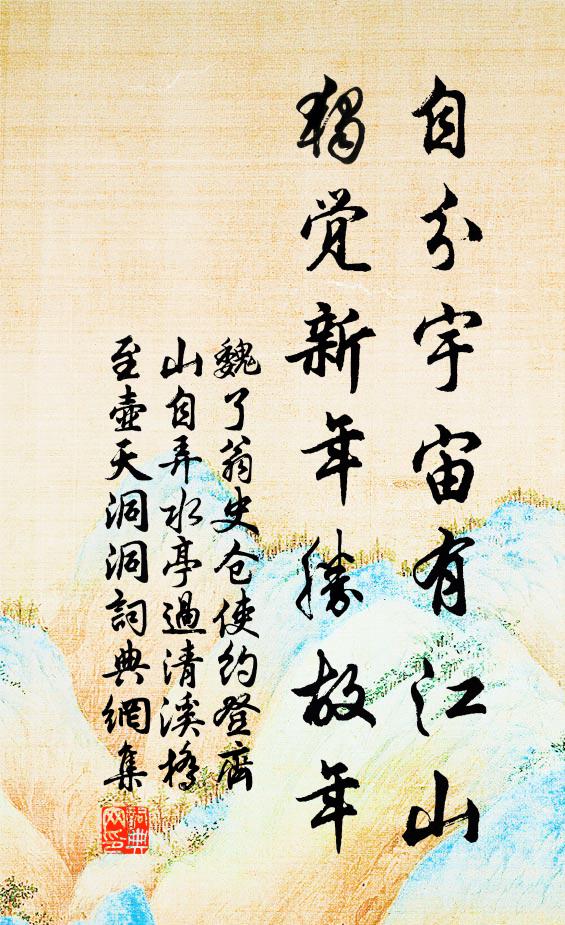 自分宇宙有江山
獨觉新年勝故年
魏了翁史仓使约登齊
山自弄水亭過清溪橋
至壺天洞洞詞典網集
詞典网印